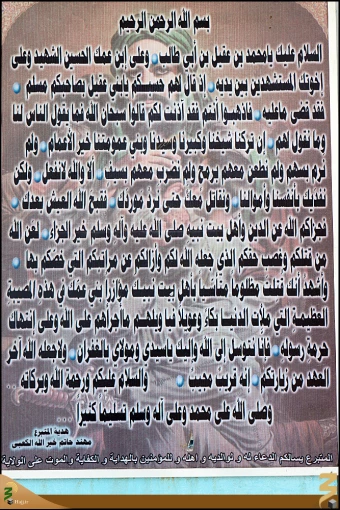 بسم الله الرحمن الرحيم
السلام عليك يامحمد بن عقيل بن أبي طالب وعلى إبن عمك الحسين الشهيد وعلى
إخوتك المستشهدين بين يديه إذ قال لهم حسبكم يابني عقيل بصاحبكم مسلم
فقد كفى ماعليه فاذهبوا أنتم فقد أذنت لكم قالوا سبحان الله فما يقول الناس لنا
وما نقول لهم إن تركنا شيخنا وكبيرنا وسيدنا وبني عمومتنا خير الأعمام ولم
نرم بسهم ولم نطعن معهم برمح ولم نضرب معهم بسيف ألا والله لانفعل ولكن
نفديك بأنفسنا وأموالنا ونقاتل معك حتى نرد موردك فقبح الله العيش بعدك
فجزاكم الله عن الدين وأهل بيت نبيه صلى الله عليه وآله وسلم خير الجزاء لعن الله
من قتلكم وغصب حقكم الذي جعله الله لكم وأزالكم عن مراتبكم التي خصكم بها
وأشهد أنك قتلت مظلوما متأسيا بأهل بيت نبيك موازرا بني عمك في هذه المصيبة
العظيمة التي ملأت الدنيا بكاء وعويلا فيا ويلهم ماجرأهم على الله وعلى انتهاك
حرمة رسوله فإنا نتوسل إلى الله وإليك ياسيدي ومولاي بالغفران ولاجعله الله آخر
العهد من زيارتكم إنه قريب مجيب والسلام عليكم ورحمة الله وبركاته
وصلى الله على محمد وعلى آله وسلم تسليما كثيرا
هدية المتبرع
مهند حاتم خير الله الكعبي
المتبرع يسالكم الدعاء له و لوالديه و اهله و للمؤمنين بالهداية و الكفاية و الموت على الولاية